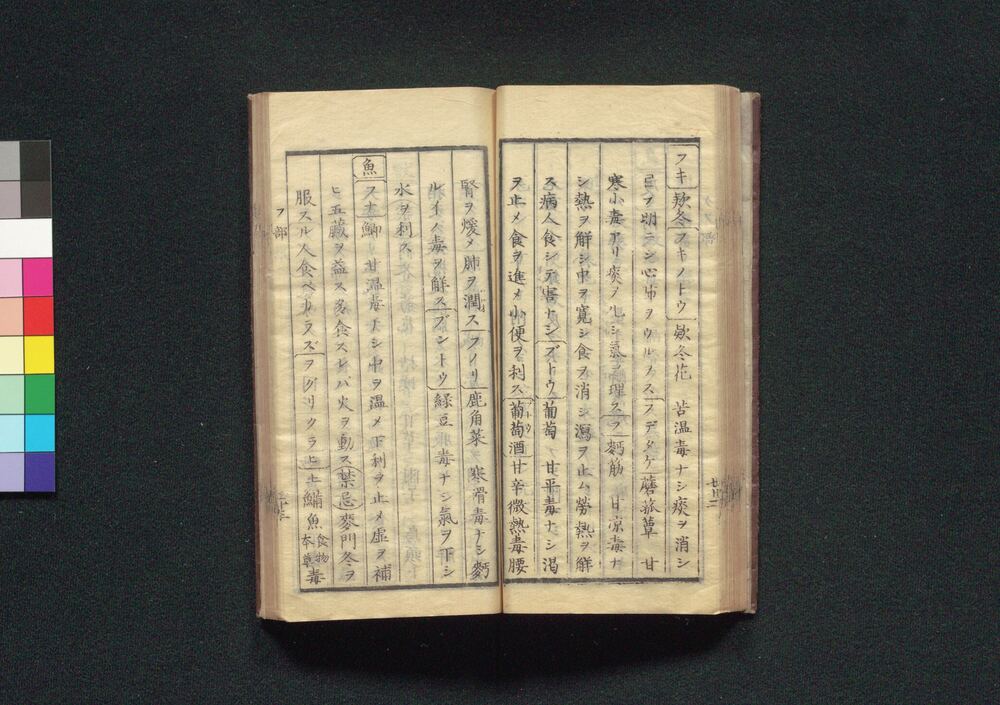 フキ 欵冬 フキノトウ 欵冬花 苦温毒ナシ痰ヲ消シ
目ヲ明ニシ心肺ヲウルホス フデタケ 蘑菰蕈 甘
寒小毒アリ痰ヲ化シ氣ヲ理ス フ 麪筋 甘凉毒ナ
シ熱ヲ解シ中ヲ寛シ食ヲ消シ瀉ヲ止ム勞熱ヲ解
ス病人食シテ害ナシ ブトウ 葡萄 甘平毒ナシ渇
ヲ止メ食ヲ進メ小便ヲ利ス 葡萄酒 甘辛微熱毒腰
腎ヲ煖メ肺ヲ潤ス フノリ 鹿角菜 寒滑毒ナシ麪
ルイノ毒ヲ解ス ブントウ 緑豆 毒ナシ氣ヲ下シ
水ヲ利ス
魚 フナ 鯽 甘温毒ナシ中ヲ温メ下利ヲ止メ虚ヲ補
ヒ五藏ヲ益ス多食スレバ火ヲ動ス 禁忌 麥門冬ヲ
服スル人食ベカラズ ヲグリクラヒ 土鯆魚 食物本草 毒
フ部